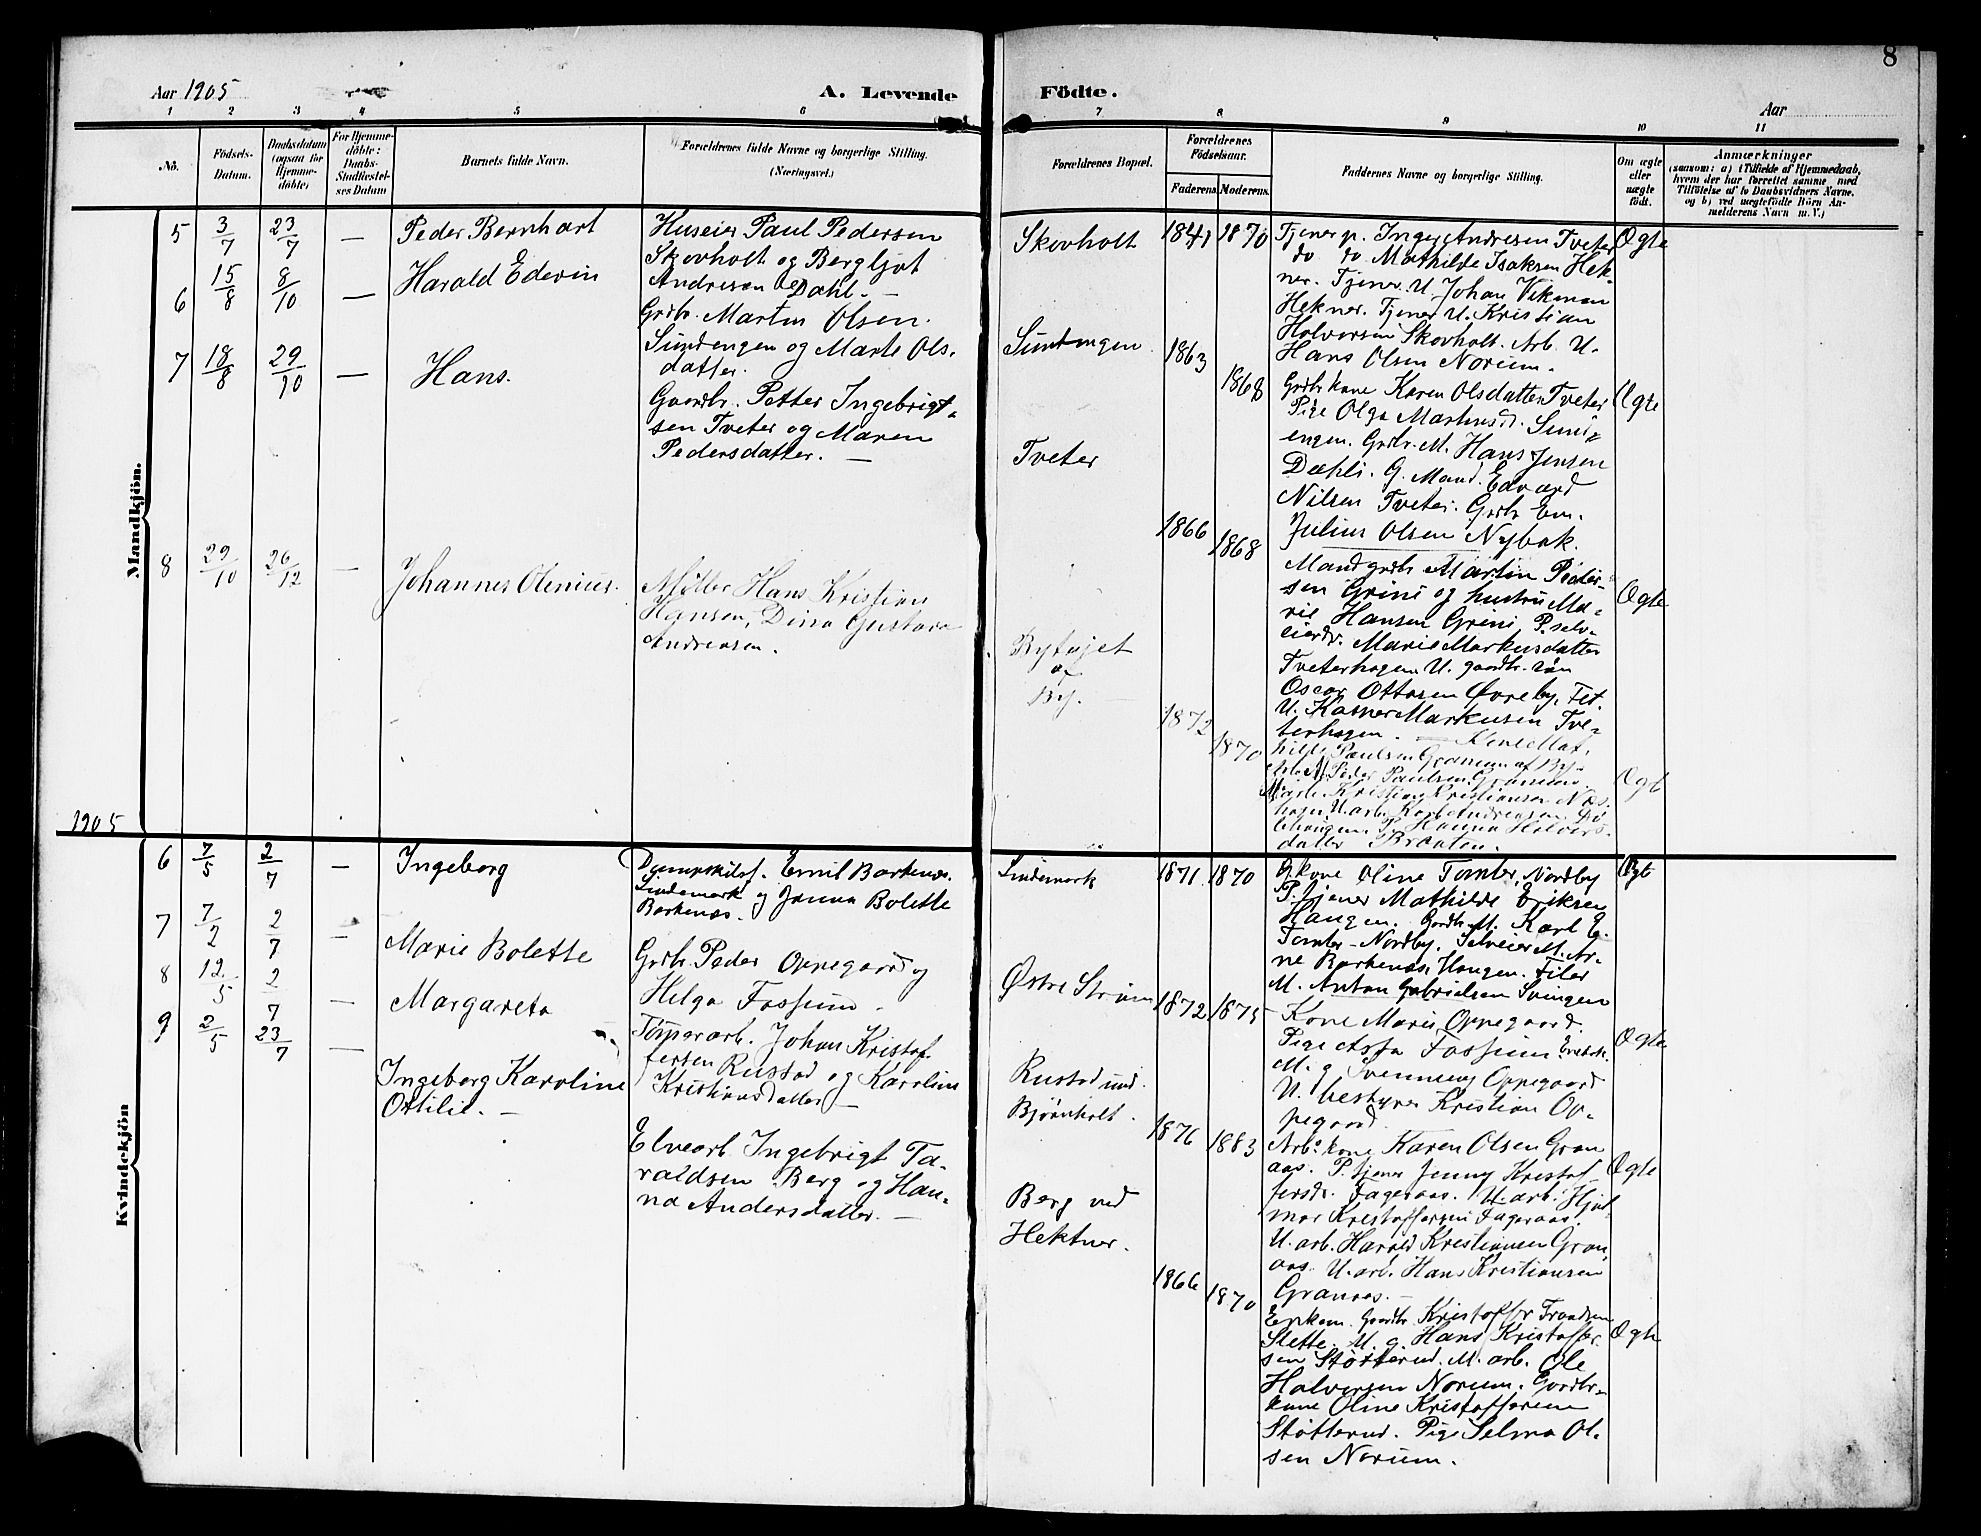 8
Aar 1905
A. Levende Födte.
Aar
1 2 3 4 5 6 7 8 9 10 11
No.
Födsels-
Datum.
Daabsdatum
(ogsaa for
Hjemme-
döbte)
For Hjemme-
döbte:
Daabs-
Stadfæstel-
ses Datum
Barnets fulde Navn.
Forældrenes fulde Navne og borgerlige Stilling.
(Næringsvei.)
Forældrenes Bopæl.
Forældrenes
Födselsaar.
Faderens. Moderens.
Faddernes Navne og borgerlige Stilling.
Om ægte
eller
uægte
födt.
Anmærkninger
(saasom: a) (Tilfælde af Hjemmedaab,
hvem der har forrettet samme med
Tilföielse af to Daabsvidners Navne,
og b) ved uægtefödte Börn An-
melderens Navn m. V.)
Mandkjön.
5 3/7 23/7 — Peder Bernhart
Huseier Paul Pedersen
Skovholt og Bergljot
Andresen Dahl. —
Skovholt
1841 1870
Tjener p. Inga Andresen Tveter
do do Mathilde Isaksen Hek-
ner. Tjener U. Johan Vikman
Hekner. Tjener U. Kristian
Halvorsen Skovholt. Arb. U.
Hans Olsen Norum.
Ægte
6 15/8 8/10 — Harald Edevin
Grdbr. Martin Olsen
Sundengen og Marte Ols-
datter.
Sundengen
1863 1868
Grdbr kone Karen Olsdatter Tveter
Pige Olga Martinsd. Sund-
engen. Grdbr. M. Hans Jensen
Dæhli. G. Mand. Edvard
Nilsen Tveter. Grdbr Em.
Julius Olsen Nybak.
Ægte
7 18/8 29/10 — Hans.
Gaardbr. Petter Ingebrigt-
sen Tveter og Maren
Pedersdatter. —
Tveter
1866 1868
Mand grdbr Martin Peder-
sen Grini og hustru Ma-
rie Hansen Grini P. selv-
eierdr. Marie Markusdatter
Tveterhagen U. gaardbr. søn
Oscar Ottosen Øvreby, Fet.
U. Kasper Markusen Tve-
terhagen. —
Ægte
8 29/10 26/12 — Johannes Olenius.
Møller Hans Kristian
Hansen, Dina Gustava
Andreasen.
By.
1872 1870
Kone Mat-
hilde Paulsen Granum af By.
Arb. M. Peder Paulsen Granum
Kristiansen Næs-
U. arb. Karl Andreasen
P. Hanna Halvors-
datter Braaten.
Ægte
1905
Kvindekjön
6 7/5 2/7 — Ingeborg
Emil Barkenæs
Lindemark og Janna Bolette
Barkenæs.
Lindemark
1871 1870
G. kone Oline Tomter, Nordby
P. tjener Mathilde Eriksen
Haugen. Gaardbr. M. Karl E.
Tomter-Nordby. Selveier M. Ar-
ne Barkenæs, Haugen. Filer
M. Anton Gabrielsen Svingen
Ægte
7 7/2 2/7 — Marie Bolette
Grdbr. Peder Oppegaard og
Helga Fossum.
Østre Strøm
1872 1875
Kone Marie Oppegaard.
Pige Assa Fossum
M. g. Svennung Oppegaard
U. bestyrer Kristian Op-
pegaard.
Ægte
8 12/5 2/7 — Margareta
Tømmerarb. Johan Kristof-
fersen Rustad og Karoline
Kristiansdatter —
Rustad und.
Bjørnholt.
1876 1883
Arb. kone Karen Olsen Gran-
aas. P. tjener Jenny Kristof-
fersdr. Fageraas. U. arb. Hjal-
mar Kristoffersen Fageraas.
U. arb. Harald Kristiansen Gran-
aas. U. arb. Hans Kristiansen
Granaas. —
Ægte
9 2/5 23/7 — Ingeborg Karoline
Ottilie. —
Elvearb. Ingebrigt Ta-
raldsen Berg og Han-
na Andersdatter. —
Berg ved
Hektner.
1866 1870
Enkem. Gaardbr. Kristoffer Trondsen
Slette. M. g. Hans Kristoffer-
sen Støtterud. M. arb. Ole
Halvorsen Norum. Gaardbr-
kone Oline Kristoffersen
Støtterud. Pige Selma Ol-
sen Norum.
Ægte